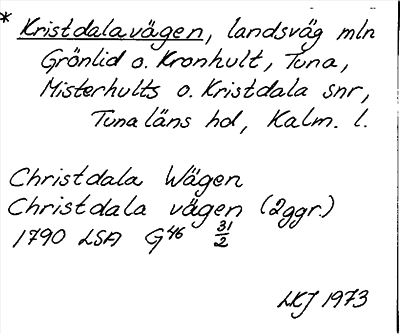 * Kristdalavägen, landsväg mln
Grönlid o. Kronhult, Tuna,
Misterhults o. Kristdala snr,
Tunaläns hd, Kalm. l.
Christdala Wägen
Christdala vägen (2ggr.)
1790 LSA G46 31/2
LKJ 1973